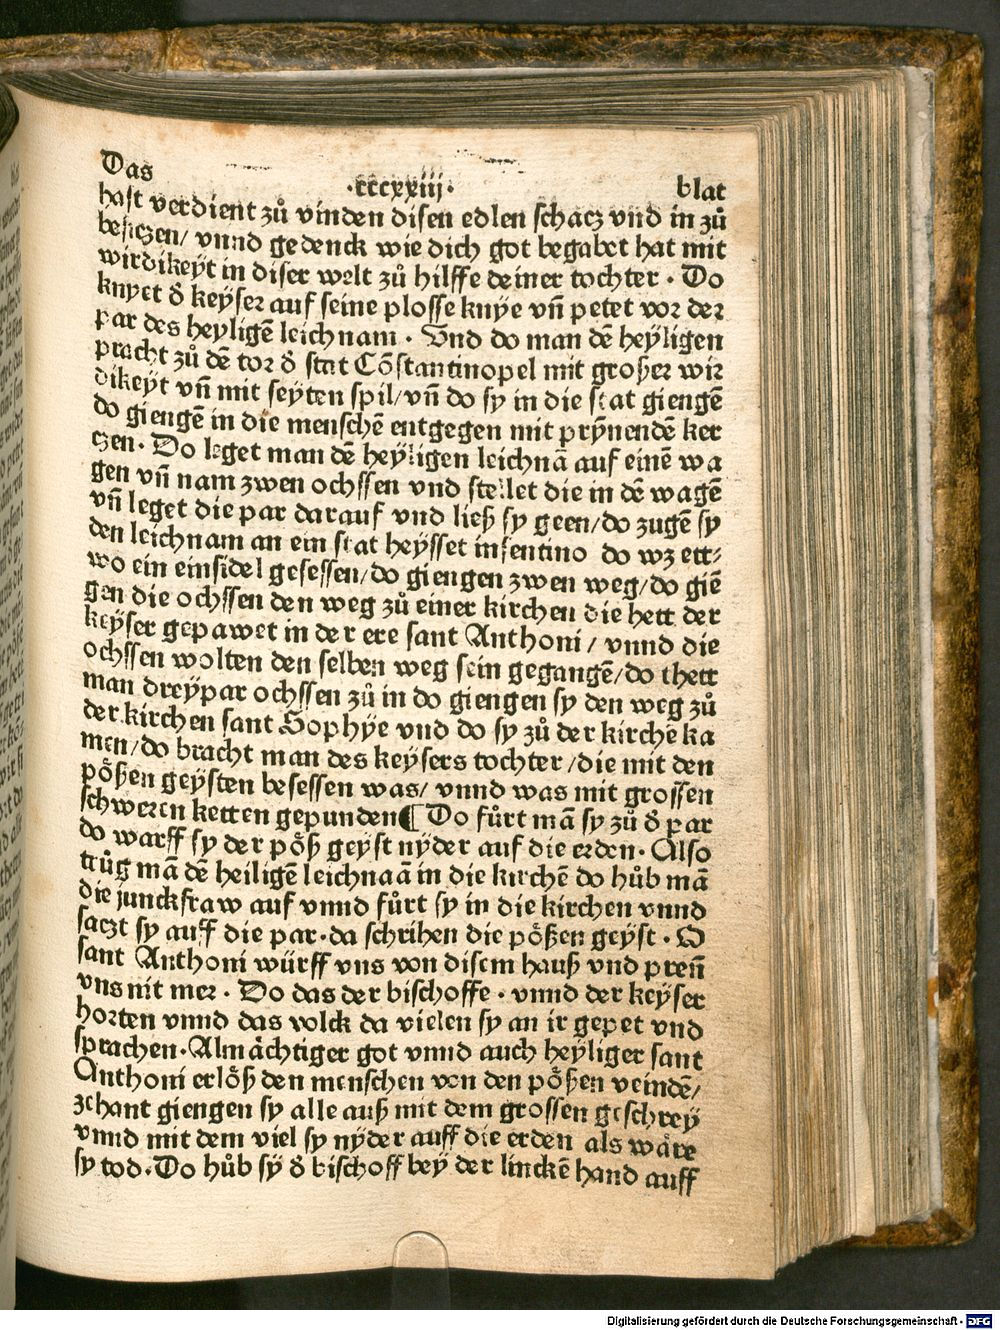 Das
·cccxxiij· blat
hast verdient zů vinden disen edlen schacz vnd in zů
besiczen/ vnnd gedenck wie dich got begabet hat mit
wirdikeÿt in diser welt zů hilffe deiner tochter · Do
knyet d̕ keÿser auf seine plosse knÿe vñ petet vor der
par des heyligē leichnam · Vnd do man dē heÿligen
pracht zů dē tor d̕ stat Cōstantinopel mit großer wir
dikeÿt vñ mit seÿten spil/ vñ do sy in die stat giengē
do giengē in die menschē entgegen mit prÿnendē ker
czen · Do leget man dē heÿligen leichnā auf einē wa
gen vñ nam zwen ochssen vnd stellet die in dē wagē
vñ leget die par darauf vnd ließ sy geen/ do zugē sy
den leichnam an ein stat heÿsset insentino do wz ett⸗
wo ein einsidel gesessen/ do giengen zwen weg/ do giē
gen die ochssen den weg zů einer kirchen die hett der
keÿser gepawet in der ere sant Anthoni / vnnd die
ochssen wolten den selben weg sein gegangē/ do thett
man dreÿpar ochssen zů in do giengen sy den weg zů
der kirchen sant Sophÿe vnd do sy zů der kirchē ka
men/ do bracht man des keÿsers tochter /die mit den
pößen geÿsten besessen was/ vnnd was mit grossen
schweren ketten gepunden ¶ Do fůrt mā sy zů d̕ par
do warff sy der pöß geÿst nÿder auf die erden · Also
trůg mā dē heiligē leichnaā in die kirchē do hůb mā
die junckfraw auf vnnd fůrt sy in die kirchen vnnd
saczt sy auff die par · da schrihen die pößen geÿst · O
sant Anthoni würff vns von disem hauß vnd preñ
vns nit mer · Do das der bischoffe · vnnd der keÿser
horten vnnd das volck da vielen sy an ir gepet vnd
sprachen · Almächtiger got vnnd auch heÿliger sant
Anthoni erlöß den menschen von den pößen veindē/
zehant giengen sy alle auß mit dem grossen geschrey
vnnd mit dem viel sy nÿder auff die erden als wäre
sy tod · Do hůb sÿ d̕ bischoff beÿ der linckē hand auff
Digitalisierung gefördert durch die Deutsche Forschungsgemeinschaft - DFG